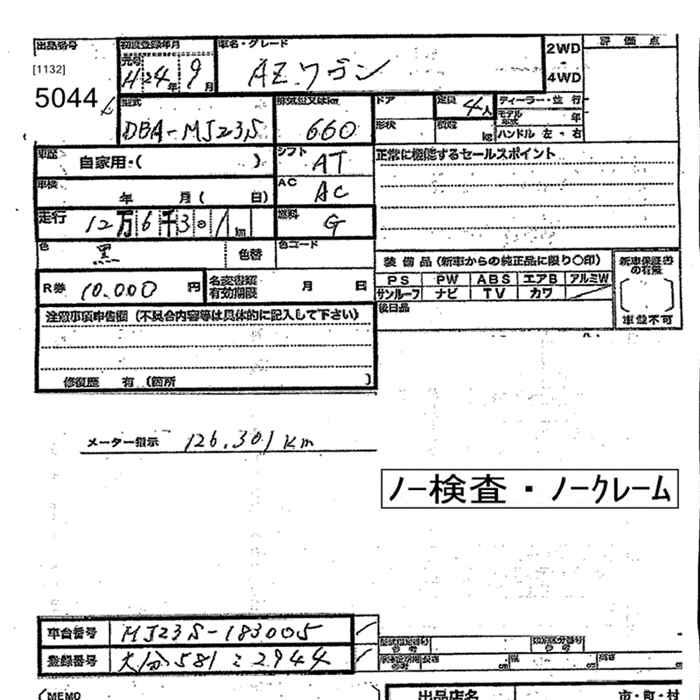 出品番号 初度登録年月 車名・グレード 2WD - 4WD 評価点
[1132] 元号 H24年 9月 AZワゴン
5044 型式 排気量又はkw ドア 定員 4人 ディーラー・並行
DBA-MJ23S 660 形状 積載 kg モデル年式 年
ハンドル 左・右
車歴 自家用・( ) シフト AT 正常に機能するセールスポイント
車検 年 月( 日) AC AC
走行 12万6千301km 燃料 G
色 黒 色替 色コード
装備品(新車からの純正品に限り○印) 新車保証書の有無
R券 10,000円 名変書類有効期限 月 日 PS PW ABS エアB アルミW
サンルーフ ナビ TV カワ
後日品 車並不可
注意事項申告欄(不具合内容等は具体的に記入して下さい)
修復歴 有 (箇所 )
メーター指示 126,301km
ノー検査・ノークレーム
車台番号 MJ23S-183005
登録番号 大分581 2944
(MEMO 出品店名 市・町・村